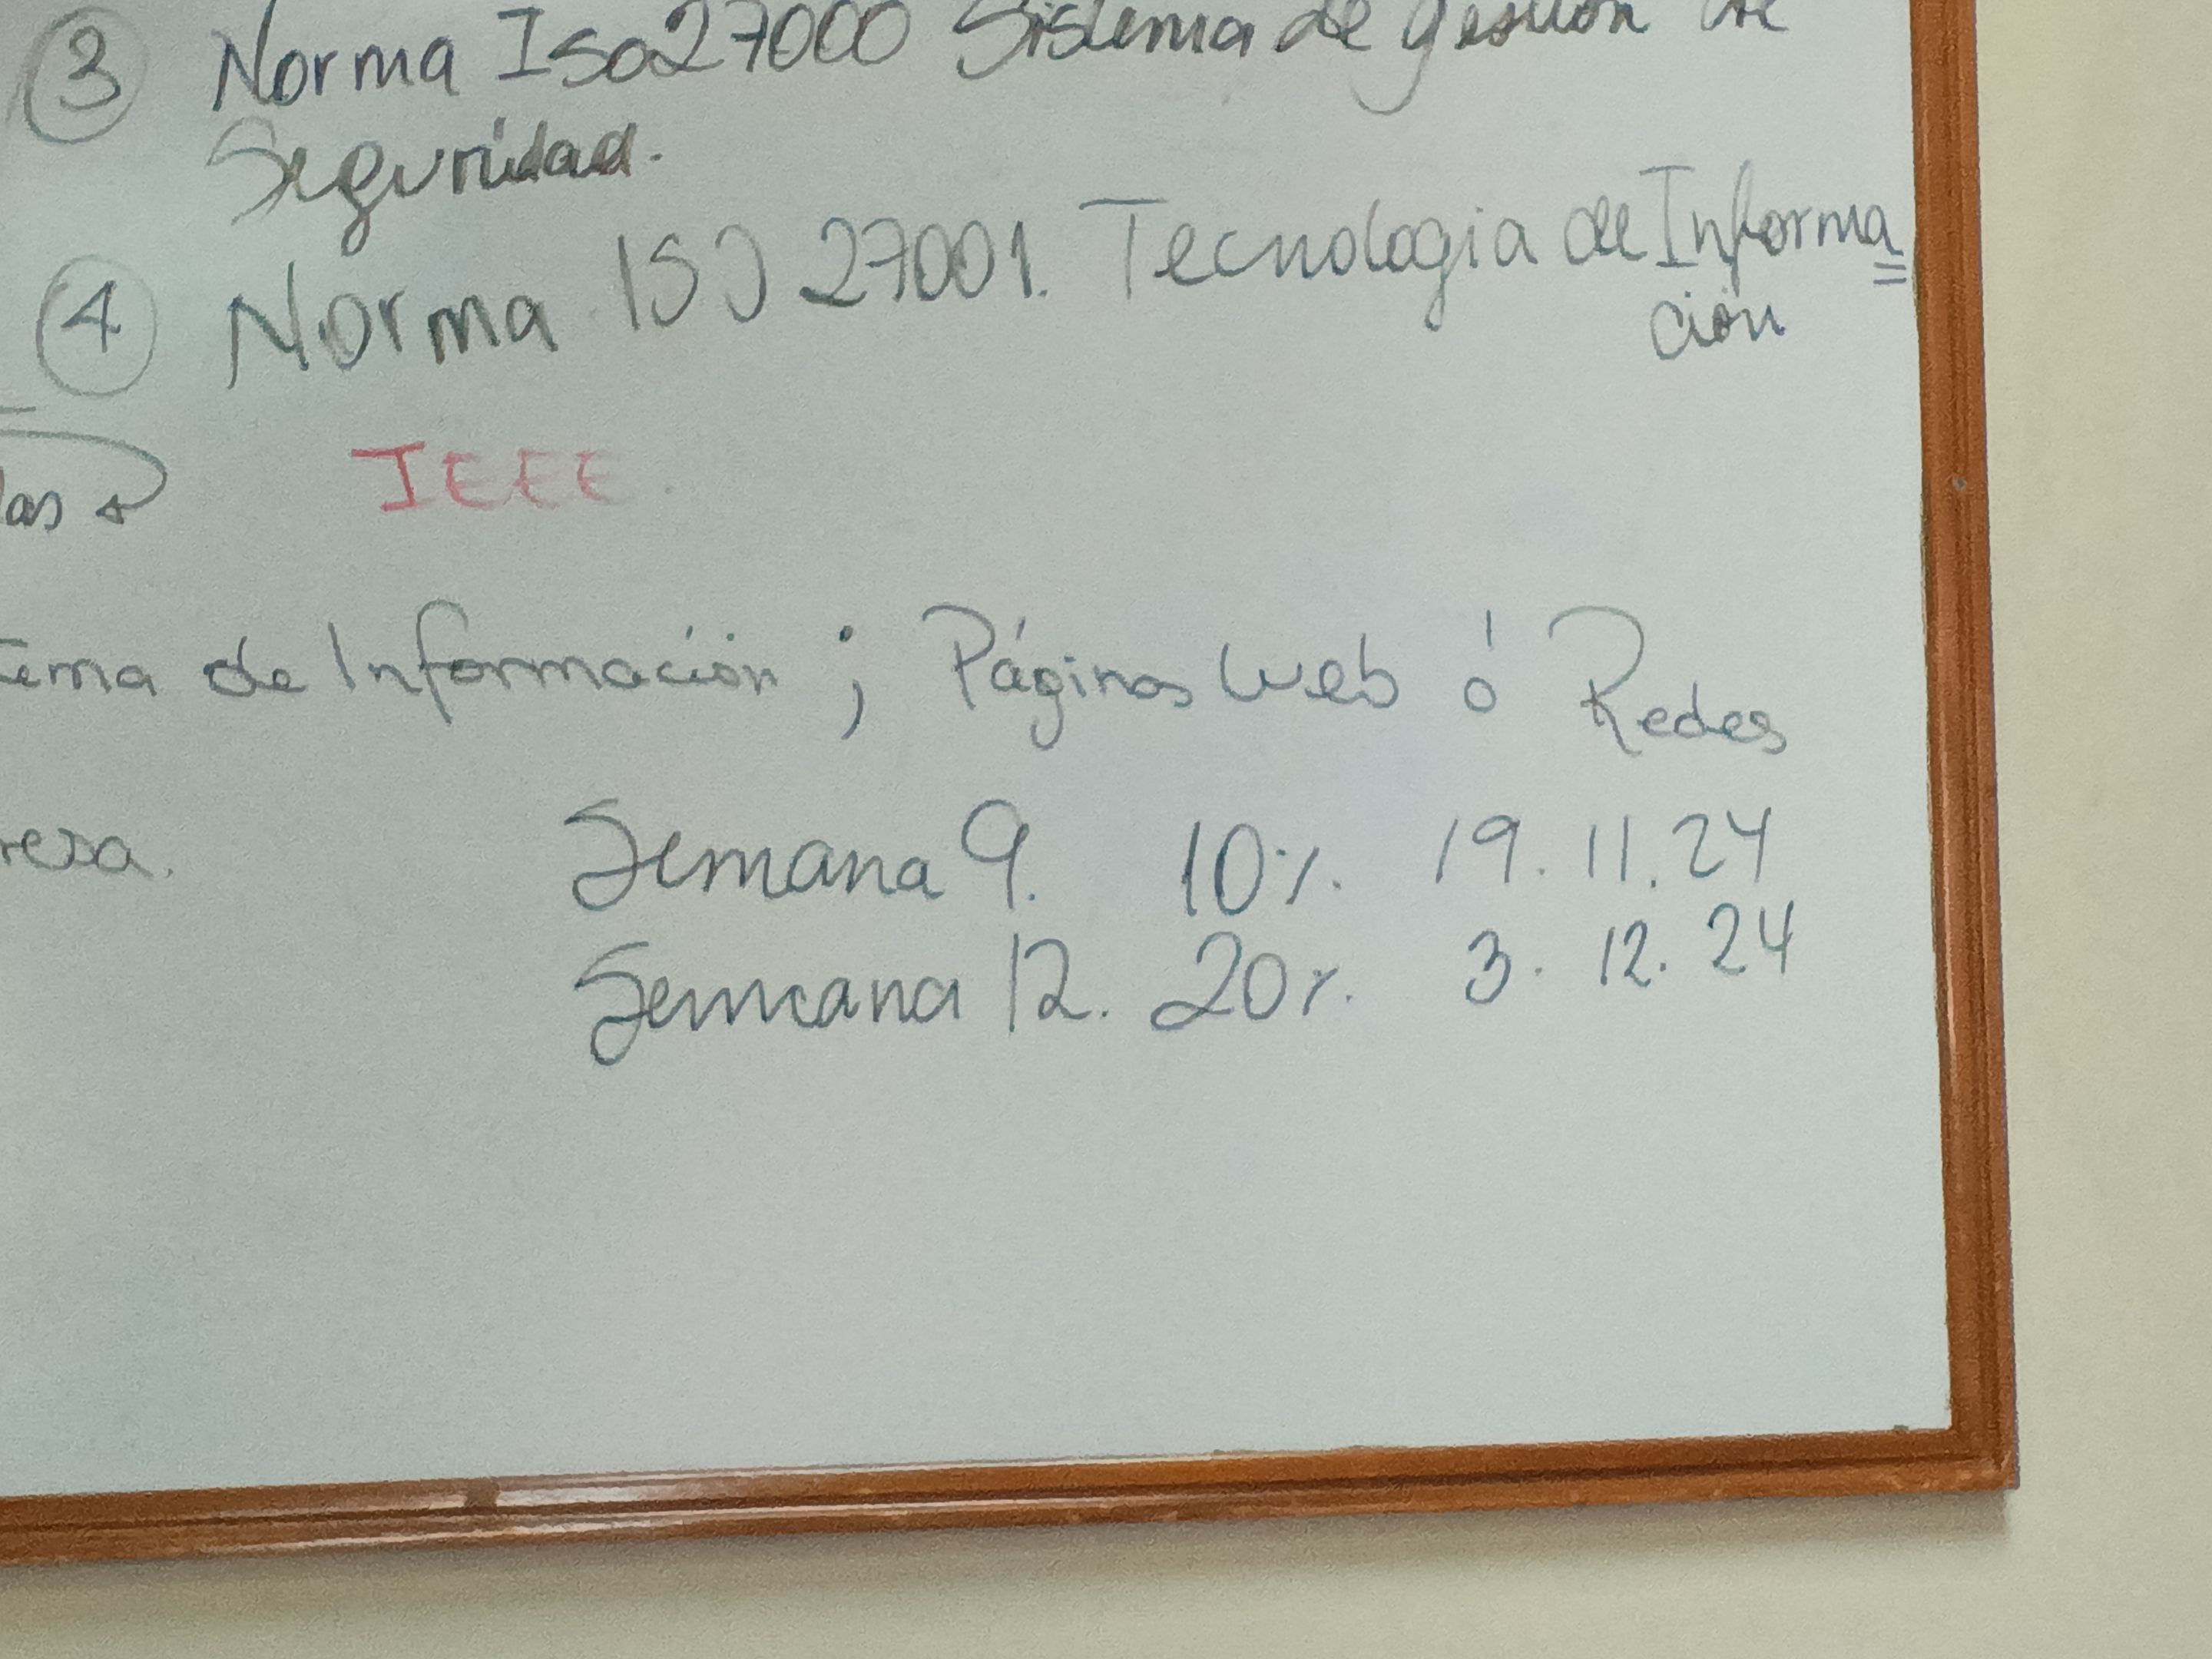 ③ Norma ISO27000 Sistema de gestión de
Seguridad.
④ Norma ISO 27001. Tecnologia de Informa
ción
IEEE.
de Información ; Páginas Web ó Redes
Semana 9. 10%. 19. 11. 24
Semana 12. 20%. 3. 12. 24